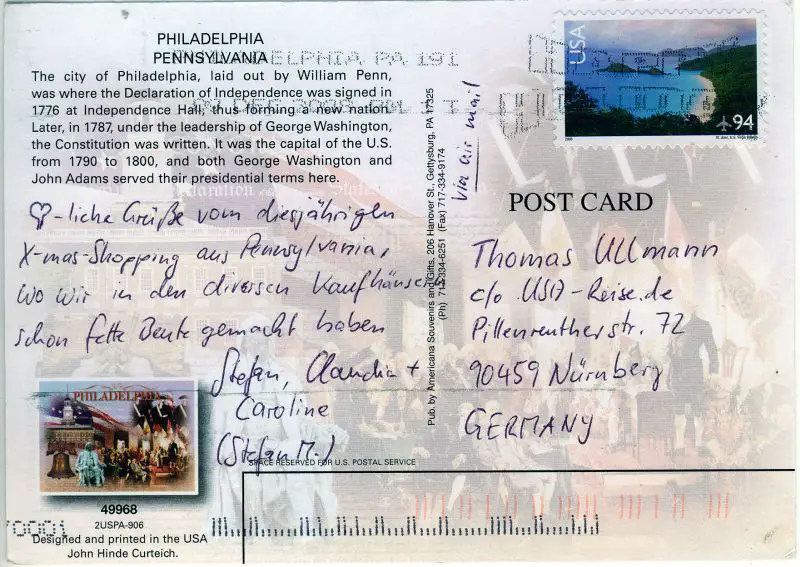 PHILADELPHIA
PENNSYLVANIA
PHILADELPHIA PA 191
The city of Philadelphia, laid out by William Penn,
was where the Declaration of Independence was signed in
1776 at Independence Hall, thus forming a new nation.
Later, in 1787, under the leadership of George Washington,
the Constitution was written. It was the capital of the U.S.
from 1790 to 1800, and both George Washington and
John Adams served their presidential terms here.
-liche Grüße vom diesjährigen
X-mas-Shopping aus Pennsylvania,
wo wir in den diversen Kaufhäusern
schon fette Beute gemacht haben
Stefan, Claudia +
Caroline
(Stefan M.)
PHILADELPHIA
49968
2USPA-906
Designed and printed in the USA
John Hinde Curteich.
SPACE RESERVED FOR U.S. POSTAL SERVICE
Pub. by Americana Souvenirs and Gifts, 206 Hanover St., Gettysburg, PA 17325
(Ph) 717-334-6251 (Fax) 717-334-9174
via air mail
USA
94
POST CARD
Thomas Ullmann
c/o USA-Reise.de
Pillenreutherstr. 72
90459 Nürnberg
GERMANY